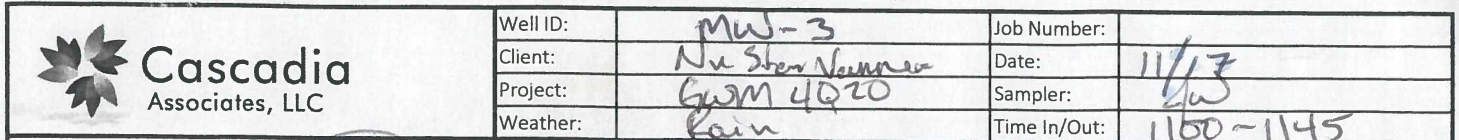 Cascadia
Associates, LLC
Well ID: MW-3 Job Number:
Client: Nu Star Date: 11/17
Project: GWM 4Q20 Sampler:
Weather: Rain Time In/Out: 1100-1145